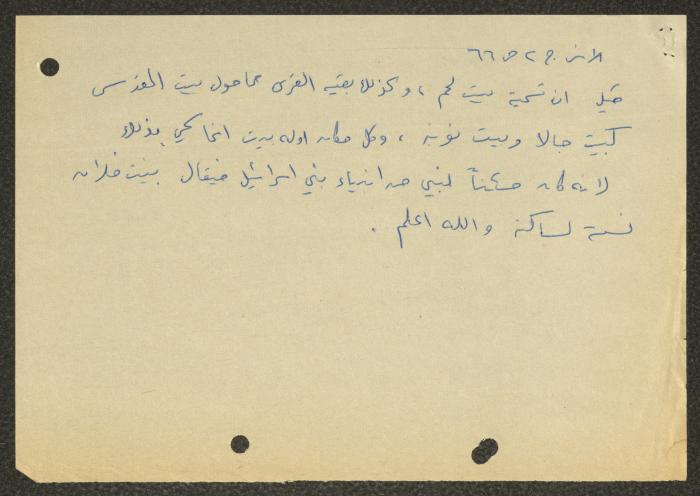 الانس ج ٢ ص ٦٦
قيل ان تسمية بيت لحم ، وكذلك بقية القرى مما حول بيت المقدس
كبيت جالا وبيت نوبه ، وكل مكان اوله بيت انما سمي بذلك
لانه كان مسكناً لنبي من انبياء بني اسرائيل فيقال بيت فلان
نسبة لساكنه والله اعلم .